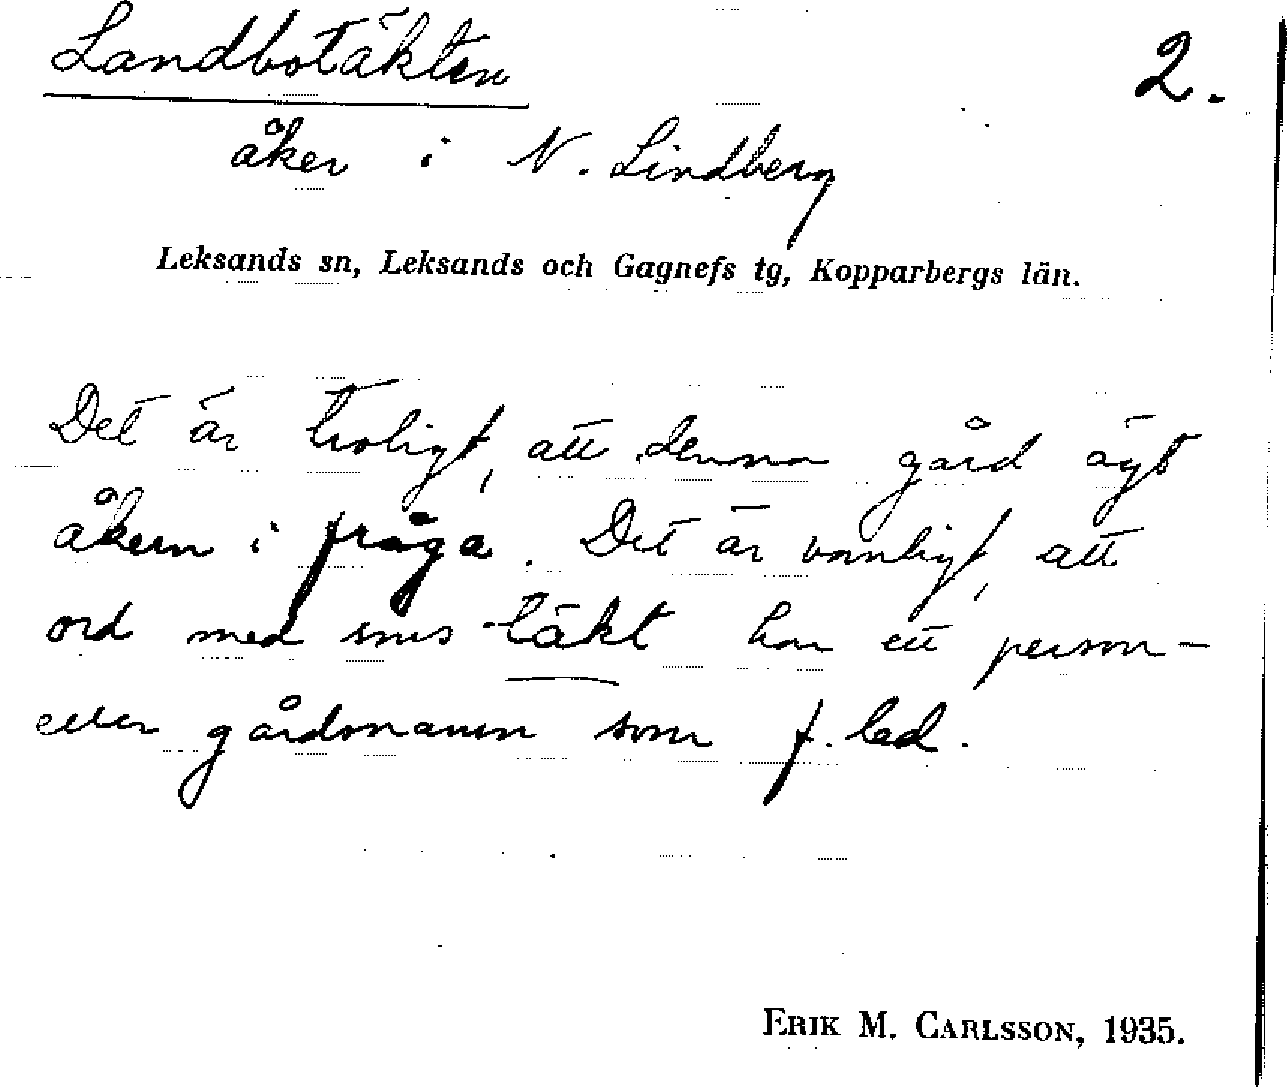 Landbotäkten
2.
åker i N. Lindberg
Leksands sn, Leksands och Gagnefs tg, Kopparbergs län.
Det är troligt, att denna gård ägt
åkern i fråga. Det är vanligt, att
ord med smls -täkt har ett person-
eller gårdsnamn som f. led.
ERIK M. CARLSSON, 1935.